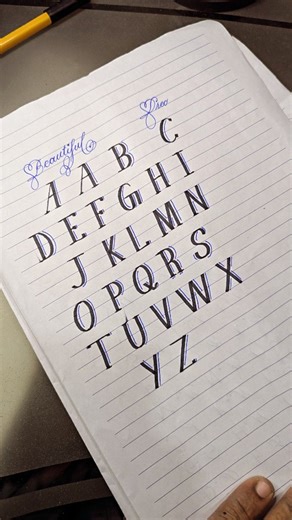 Beautiful
A A B C
D E F G H I
J K L M N
O P Q R S
T U V W X
Y Z